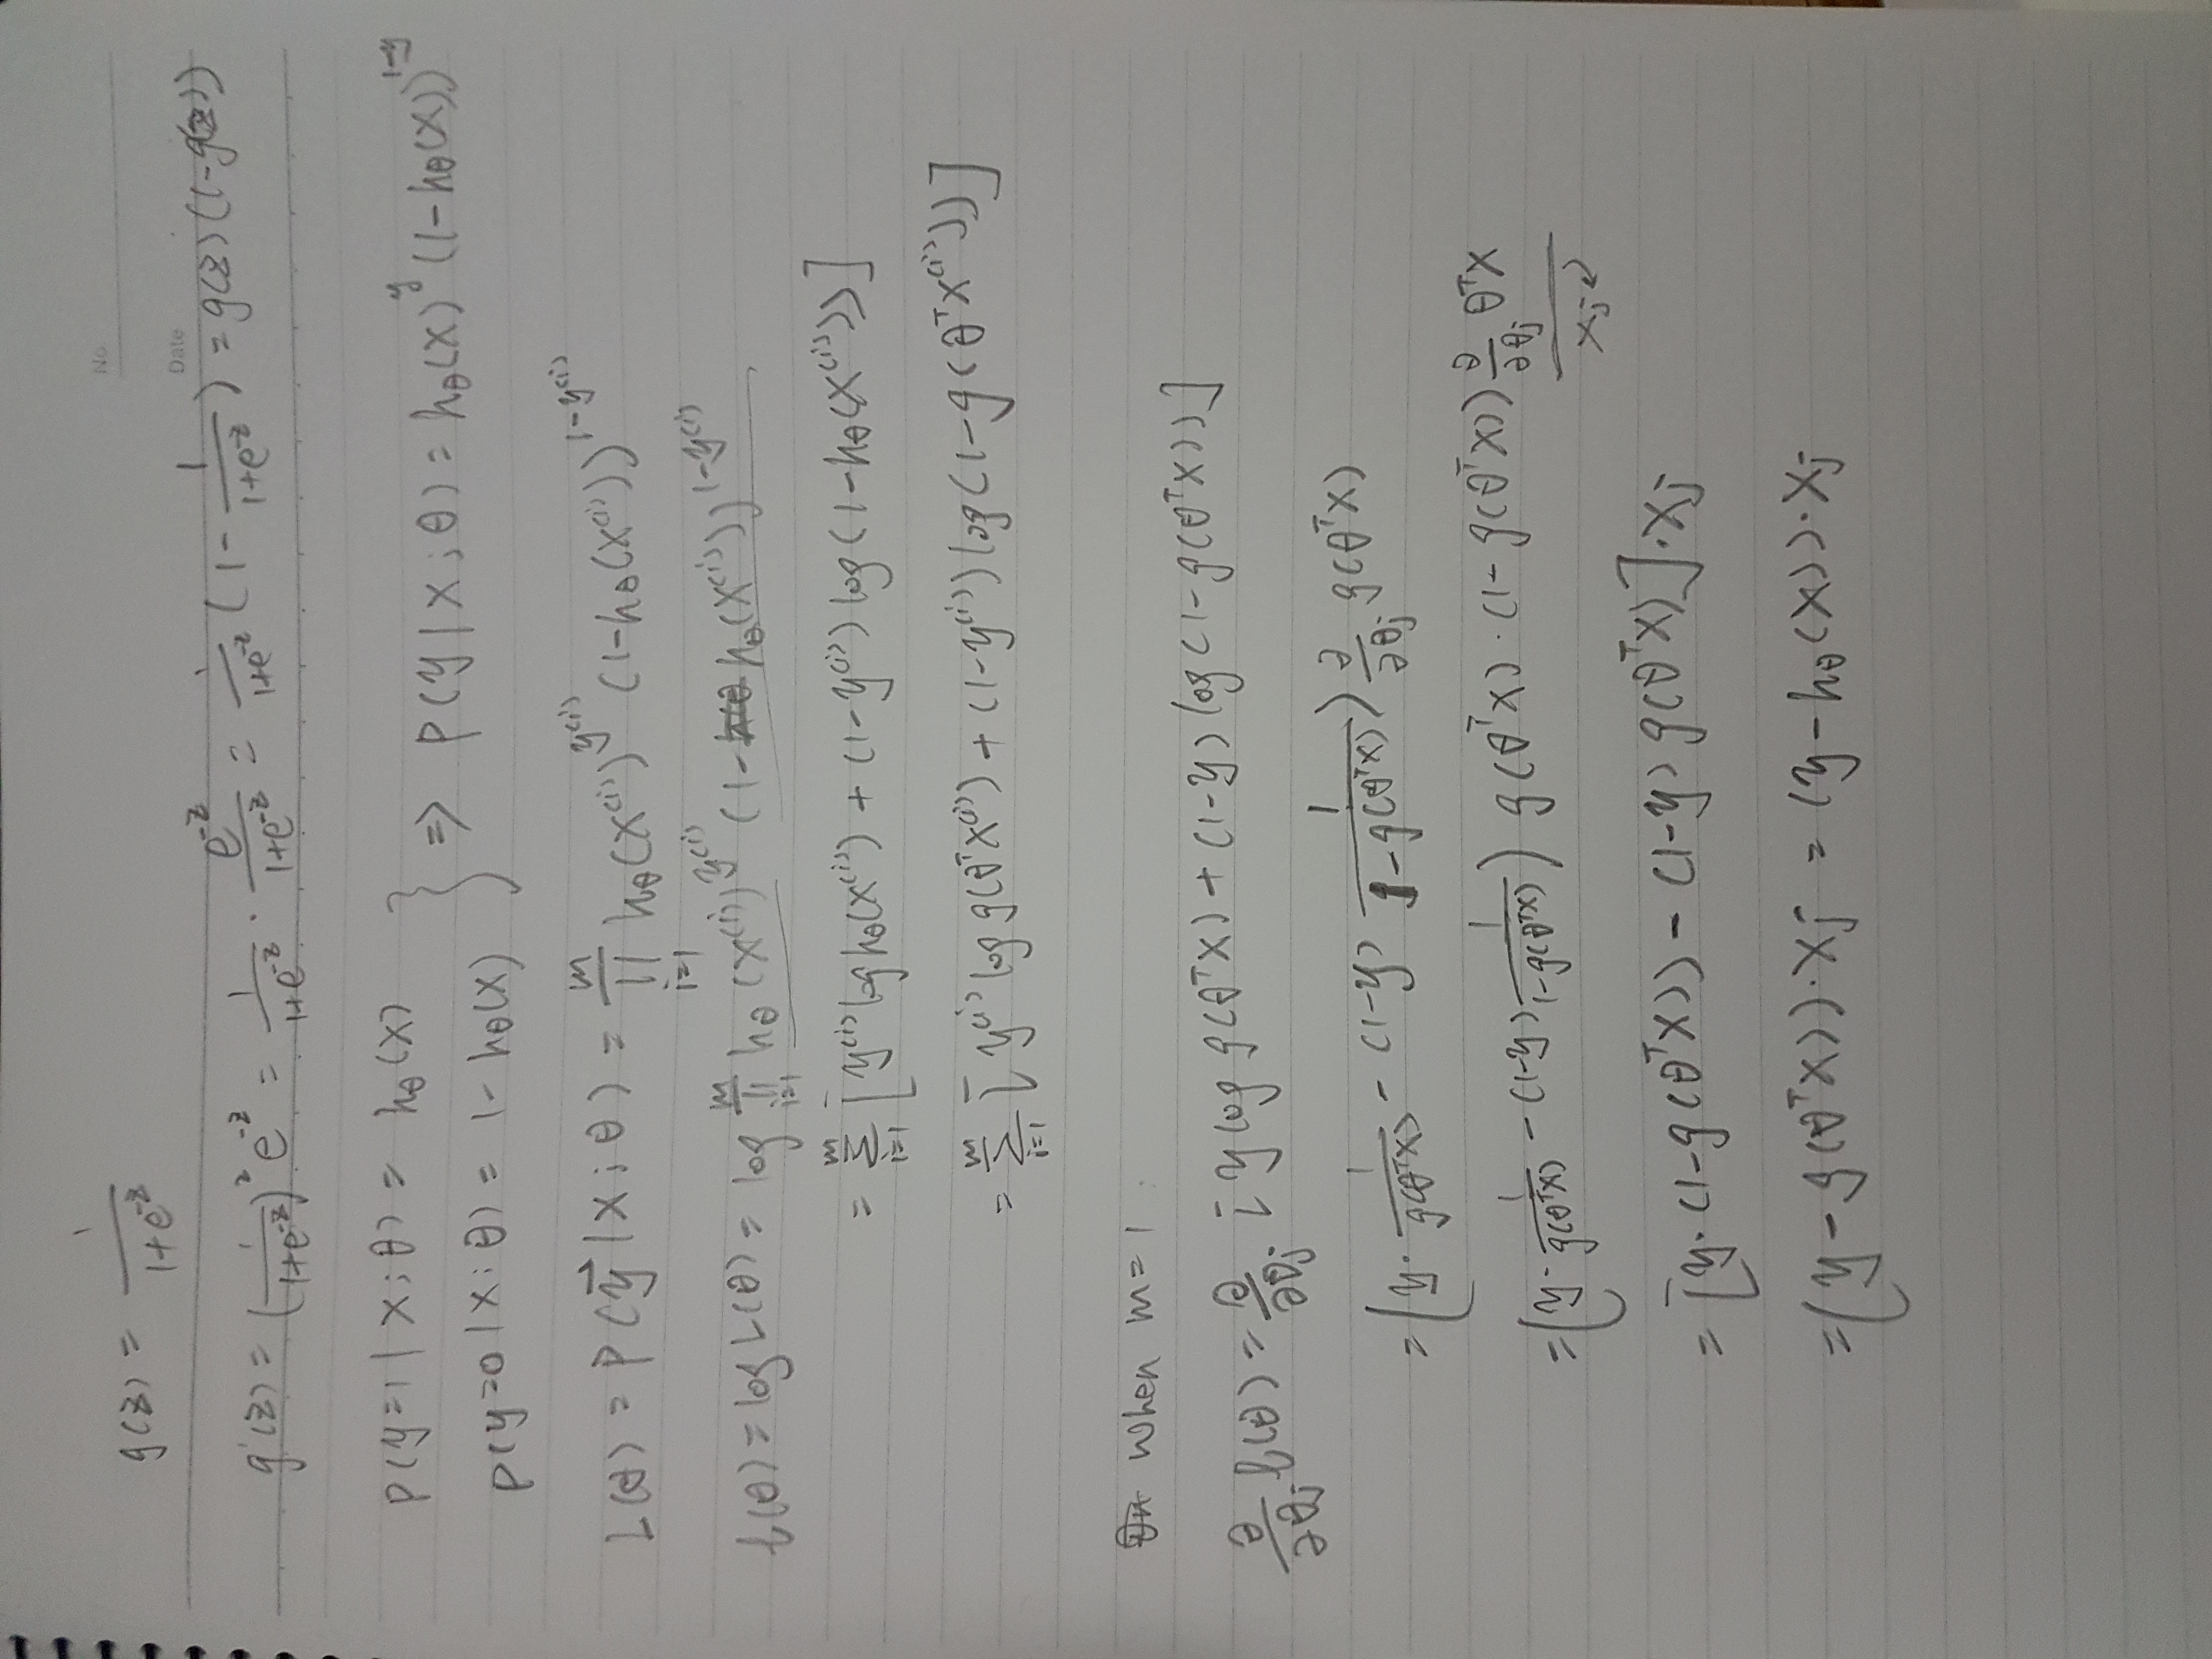 No.
g(z) = 1/(1+e^{-z})
Date
g'(z) = (1/(1+e^{-z}))^2 e^{-z} = 1/(1+e^{-z}) · e^{-z}/(1+e^{-z}) = 1/(1+e^{-z}) (1 - 1/(1+e^{-z})) = g(z)(1-g(z))
P(y=1 | x;θ) = h_θ(x)
P(y=0 | x;θ) = 1 - h_θ(x)
} => P(y | x;θ) = h_θ(x)^y (1-h_θ(x))^{1-y}
L(θ) = P(\vec{y} | X;θ) = ∏_{i=1}^{m} h_θ(x^{(i)})^{y^{(i)}} (1-h_θ(x^{(i)}))^{1-y^{(i)}}
ℓ(θ) = log L(θ) = log ∏_{i=1}^{m} h_θ(x^{(i)})^{y^{(i)}} (1-h_θ(x^{(i)}))^{1-y^{(i)}}
= ∑_{i=1}^{m} [y^{(i)} log h_θ(x^{(i)}) + (1-y^{(i)}) log(1-h_θ(x^{(i)}))]
= ∑_{i=1}^{m} [y^{(i)} log g(θ^T x^{(i)}) + (1-y^{(i)}) log(1-g(θ^T x^{(i)}))]
when m=1 :
∂/∂θ_j ℓ(θ) = ∂/∂θ_j [y log g(θ^T x) + (1-y) log(1-g(θ^T x))]
= (y · 1/g(θ^T x) - (1-y) 1/(1-g(θ^T x))) ∂/∂θ_j g(θ^T x)
= (y · 1/g(θ^T x) - (1-y) 1/(1-g(θ^T x))) g(θ^T x) · (1-g(θ^T x)) ∂/∂θ_j θ^T x
x_j
= [y · (1-g(θ^T x)) - (1-y) g(θ^T x)] · x_j
= (y - g(θ^T x)) · x_j = (y - h_θ(x)) · x_j